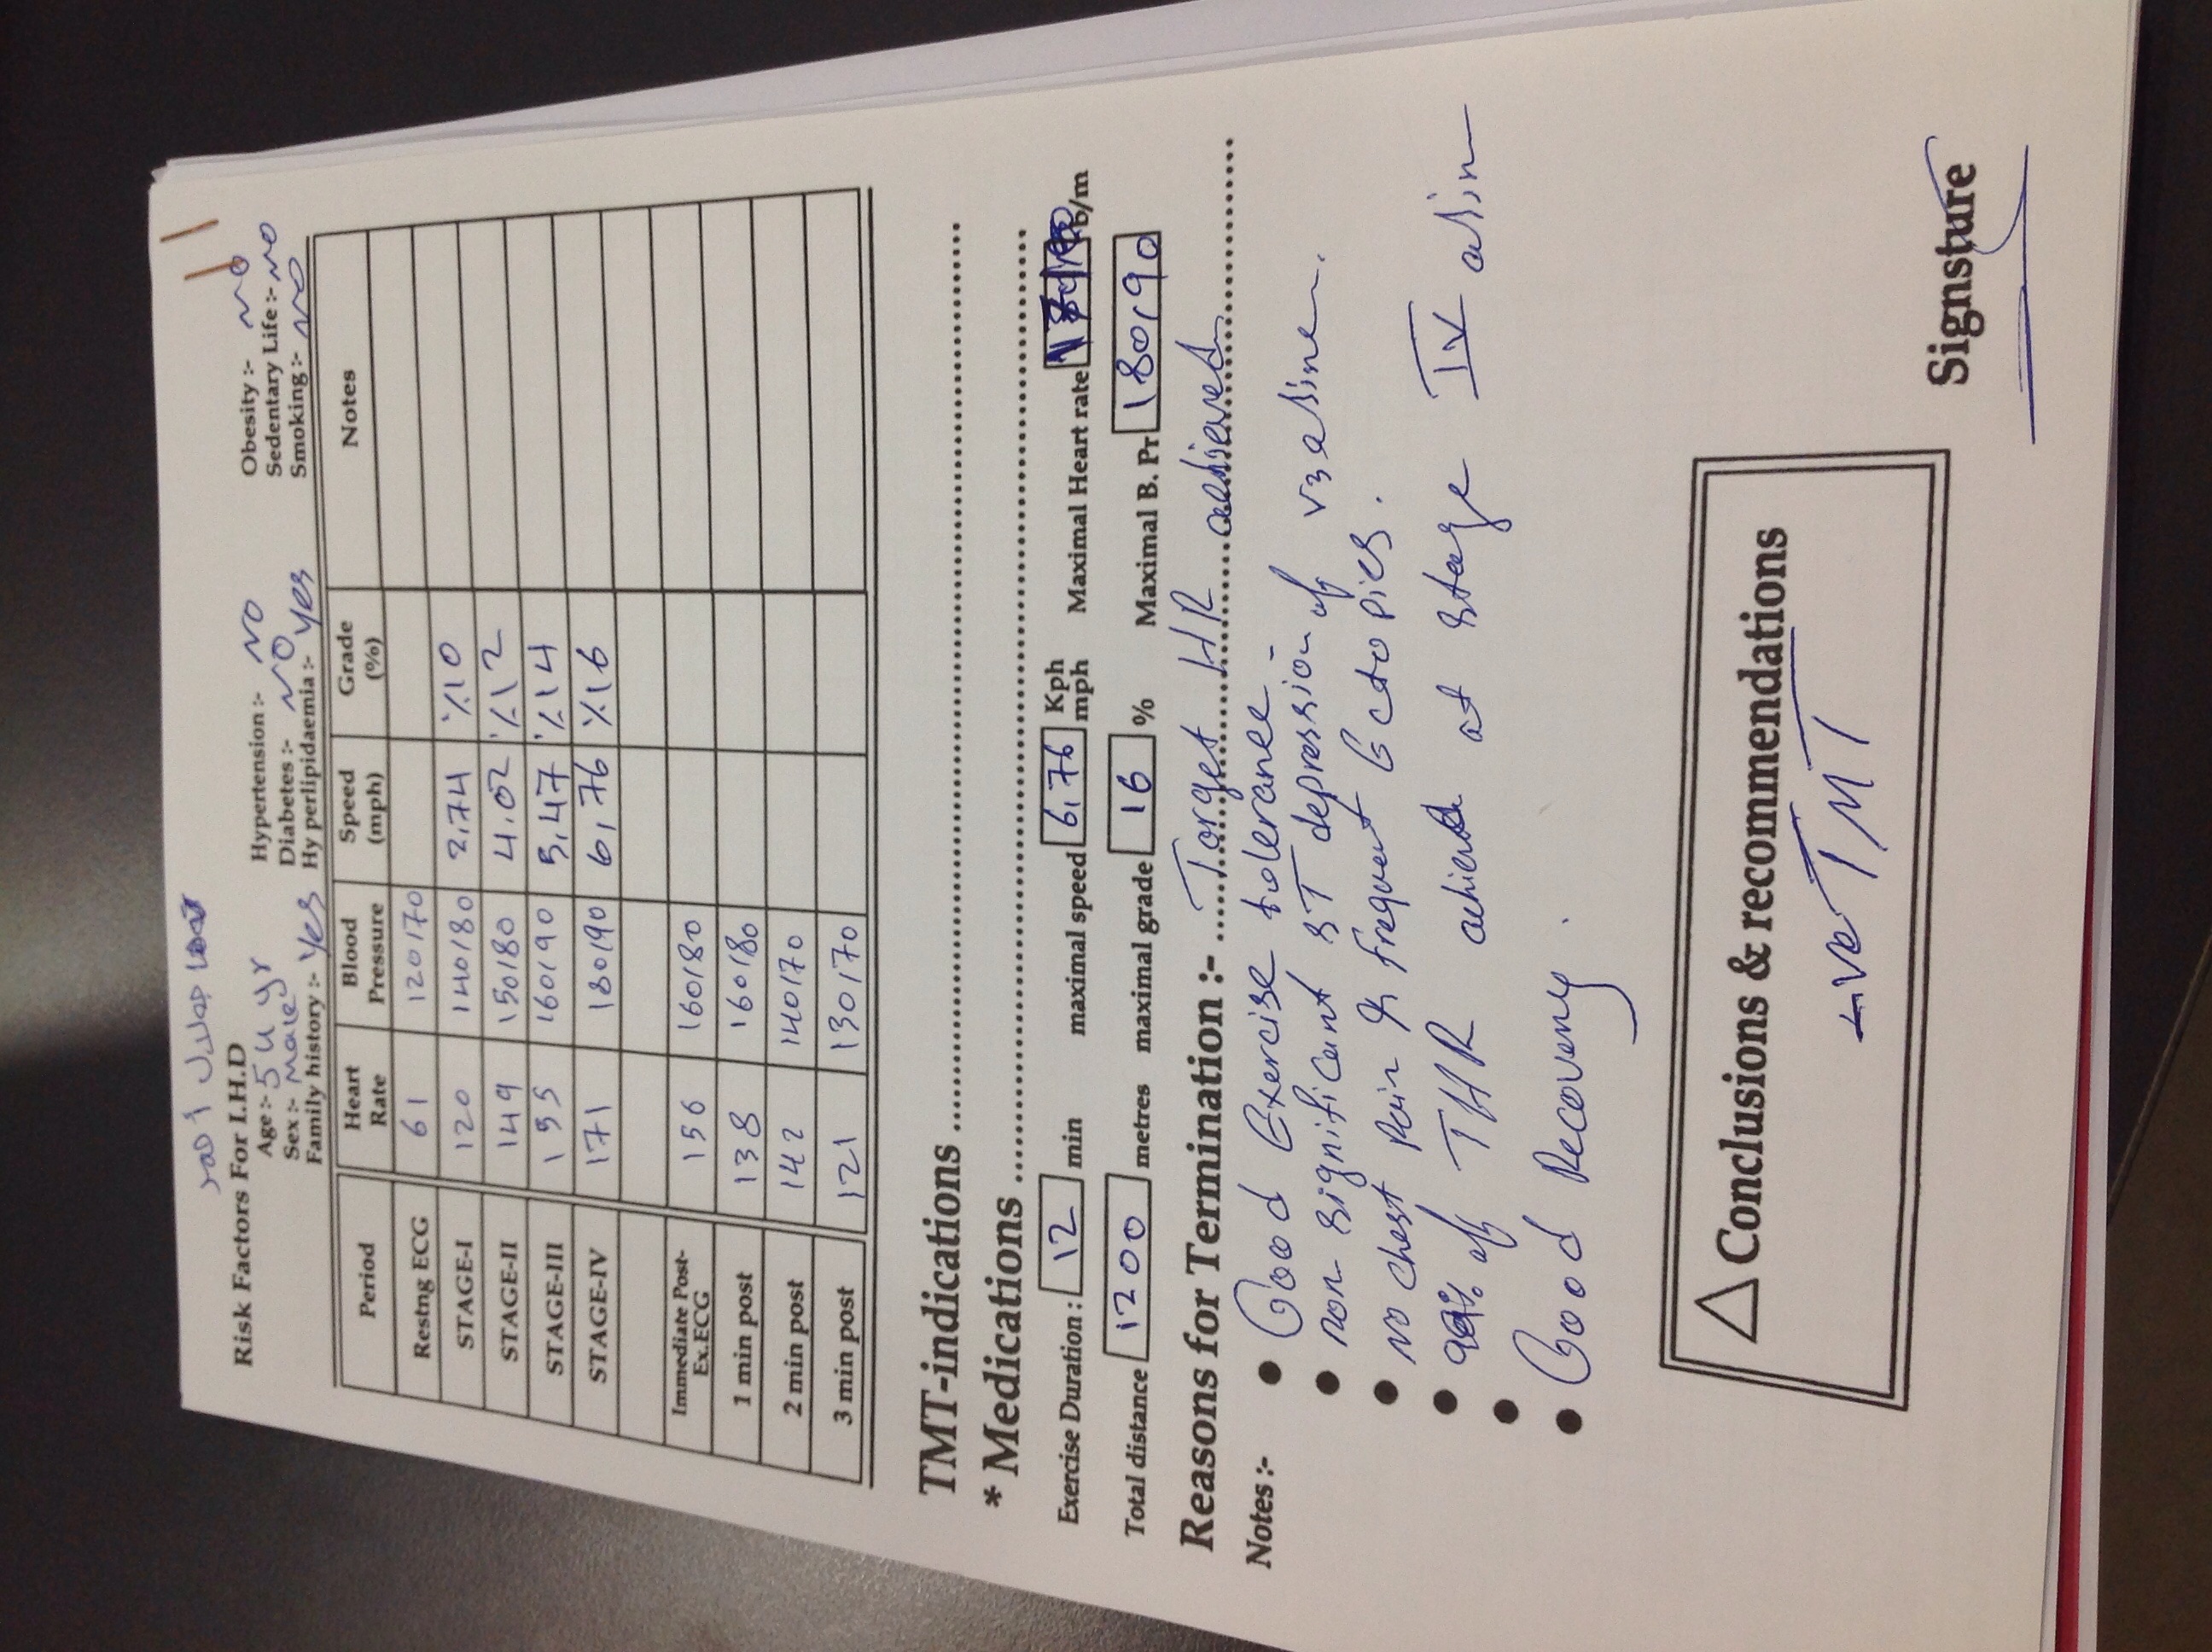 Risk Factors For I.H.D
Age :- 54 yr Hypertension :- NO Obesity :- NO
Sex :- Male Diabetes :- NO Sedentary Life :- NO
Family history :- Yes Hyperlipidaemia :- Yes Smoking :- NO
Period Heart Rate Blood Pressure Speed (mph) Grade (%) Notes
Restng ECG 61 120/70
STAGE-I 120 140/80 2.74 %10
STAGE-II 149 150/80 4.02 %12
STAGE-III 155 160/90 5.47 %14
STAGE-IV 171 180/90 6.76 %16
Immediate Post-Ex.ECG 156 160/80
1 min post 138 160/80
2 min post 142 140/70
3 min post 121 130/70
TMT-indications
* Medications
Exercise Duration : 12 min maximal speed 6.76 Kph mph Maximal Heart rate b/m
Total distance 1200 metres maximal grade 16 % Maximal B. Pr 180/90
Reasons for Termination :- Target HR achieved
Notes :-
• Good Exercise tolerance -
• non significant ST depression of
• no chest pain or frequent Ectopics.
• of THR achieved at stage IV
•
• Good Recovery.
Conclusions & recommendations
-ve TMT
Signsture